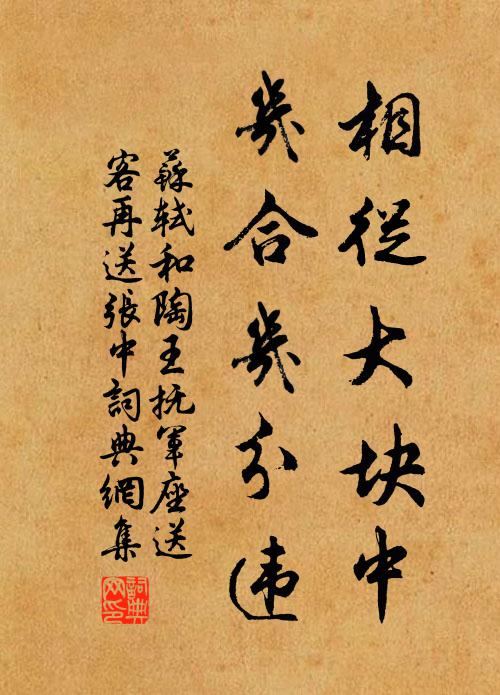 相從大块中
幾合幾分违
蘇軾和陶王抚軍座送
客再送張中詞典網集
詞典网印